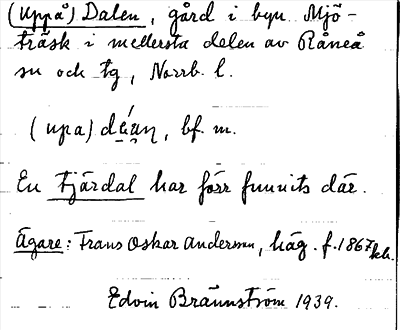 (Uppå) Dalen, gård i byn Mjö-
träsk i mellersta delen av Råneå
sn och tg, Norrb. l.
(upa) dáan, bf. m.
En tjärdal har förr funnits där.
Ägare: Frans Oskar Anderson, häg. f. 1867
Edvin Brännström 1939.